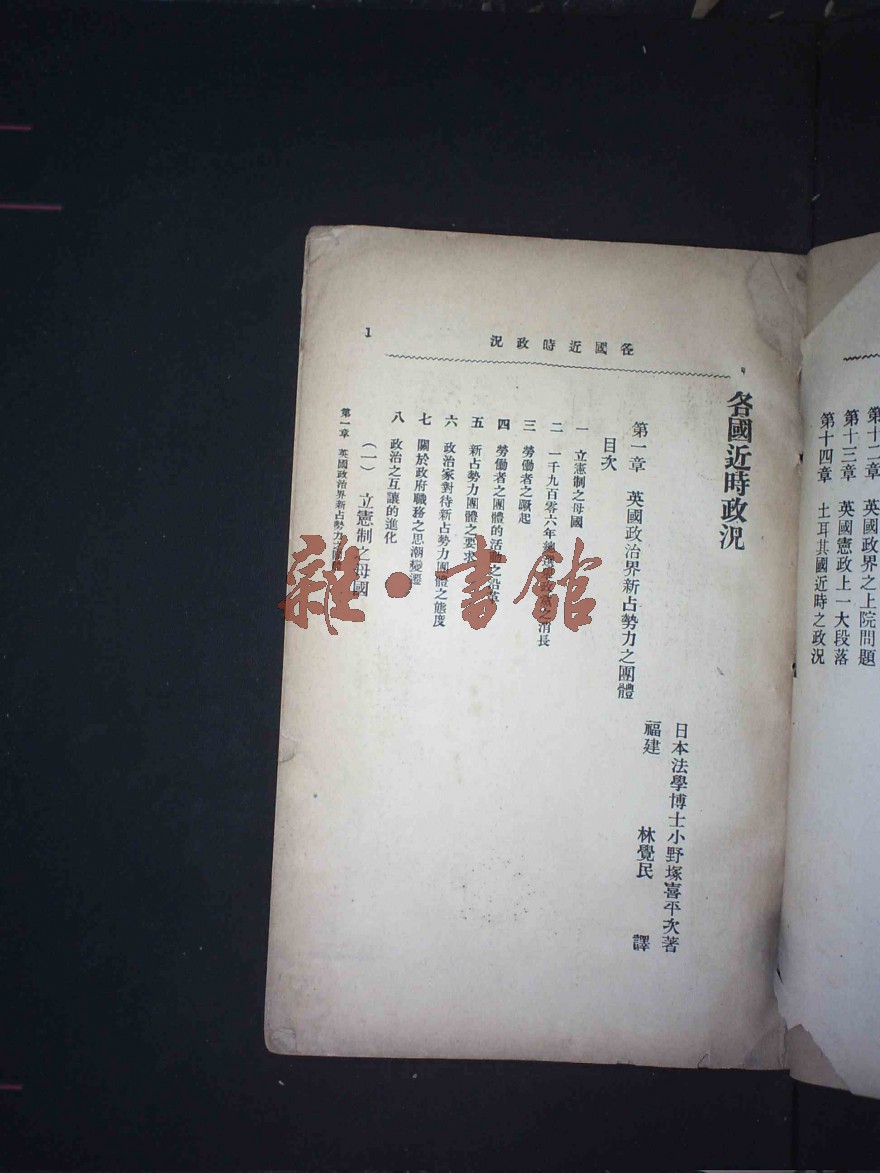 第十二章
第十三章　英國政界之上院問題
第十四章　英國憲政上一大段落
土耳其國近時之政況
各國近時政況
1
各國近時政況
日本法學博士小野塚喜平次著
福建　林覺民　譯
第一章　英國政治界新占勢力之團體
目次
一　立憲制之母國
二　一千九百零六年總選
之消長
三　勞働者之蹶起
四　勞働者之團體的活動之沿革
五　新占勢力團體之要求
六　政治家對待新占勢力團體之態度
七　關於政府職務之思潮變遷
八　政治之互讓的進化
（一）　立憲制之母國
第一章　英國政治界新占勢力之團體
雜·書館